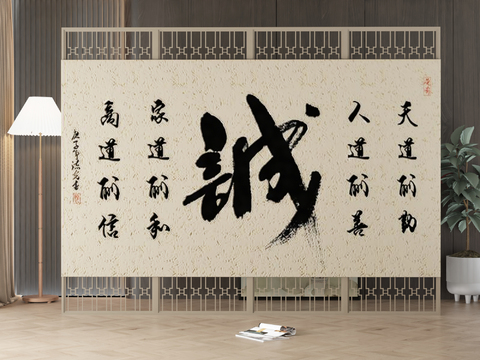 天道酬勤
人道酬善
誠
家道酬和
商道酬信
庚子年書